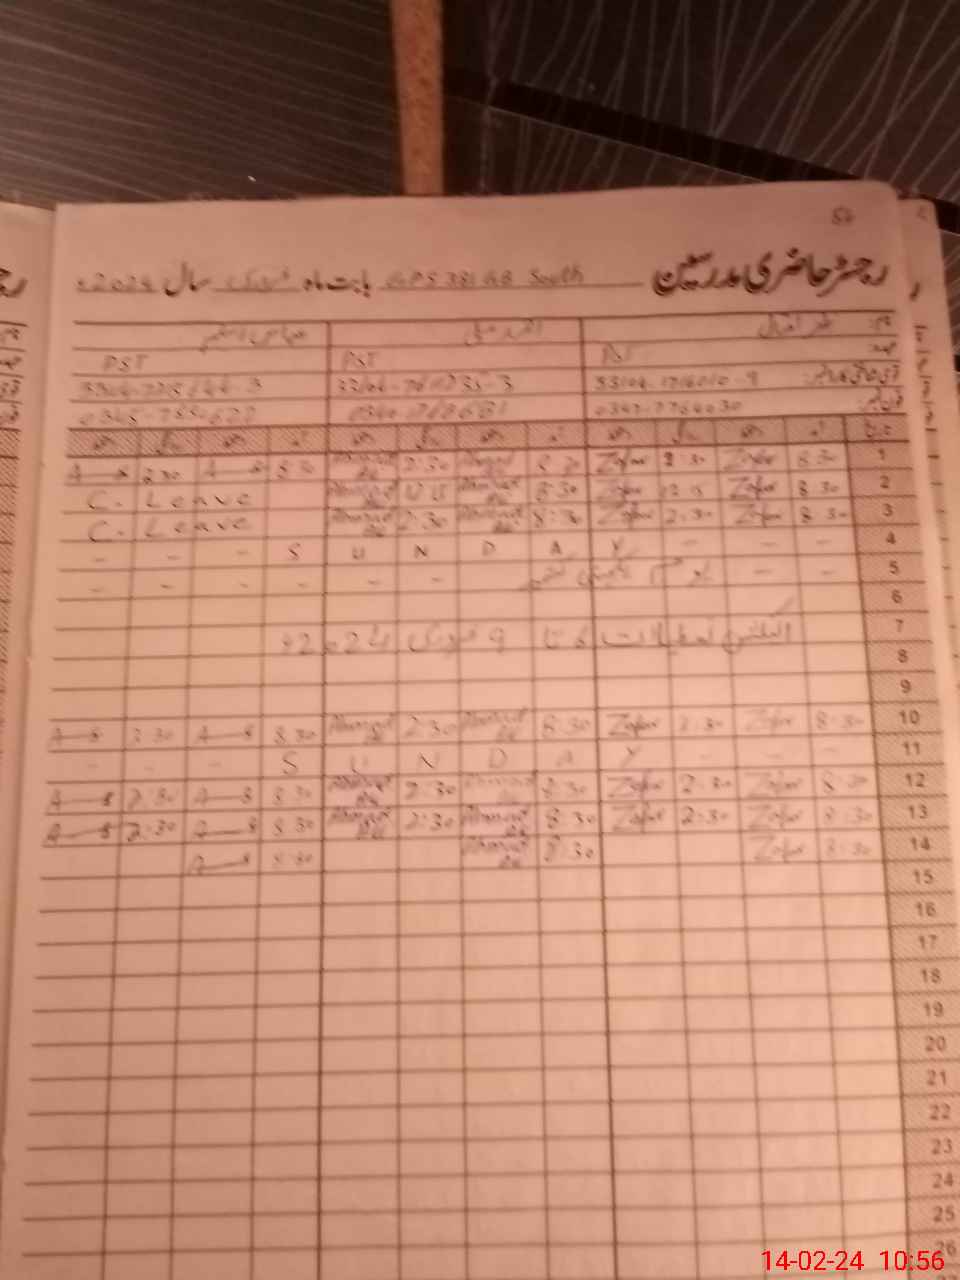 رجسٹر حاضری مدرسین GPS 381 GB South بابت ماہ فروری سال 2024ء
نام: ظفر اقبال احمد علی
عہدہ: PST PST PST
قومی شناختی کارڈ نمبر:
فون نمبر:
تاریخ آمد دستخط روانگی دستخط آمد دستخط روانگی دستخط آمد دستخط روانگی دستخط
1 8:30 Zafar 2:30 Zafar 8:30 Ahmad Ali 2:30 Ahmad Ali 8:30 A—S 2:30 A—S
2 8:30 Zafar 12:15 Zafar 8:30 Ahmad Ali 12:15 Ahmad Ali C. Leave
3 8:30 Zafar 2:30 Zafar 8:30 Ahmad Ali 2:30 Ahmad Ali C. Leave
4 - - - S U N D A Y - - -
5 - - یوم یکجہتی کشمیر - - - - - -
6
7 الیکشن تعطیلات 6 تا 9 فروری 2024
8
9
10 8:30 Zafar 2:30 Zafar 8:30 Ahmad Ali 2:30 Ahmad Ali 8:30 A—S 2:30 A—S
11 - - - S U N D A Y - - -
12 8:30 Zafar 2:30 Zafar 8:30 Ahmad Ali 2:30 Ahmad Ali 8:30 A—S 2:30 A—S
13 8:30 Zafar 2:30 Zafar 8:30 Ahmad Ali 2:30 Ahmad Ali 8:30 A—S 2:30 A—S
14 8:30 Zafar 8:30 Ahmad Ali 8:30 A—S
15
16
17
18
19
20
21
22
23
24
25
26
14-02-24 10:56